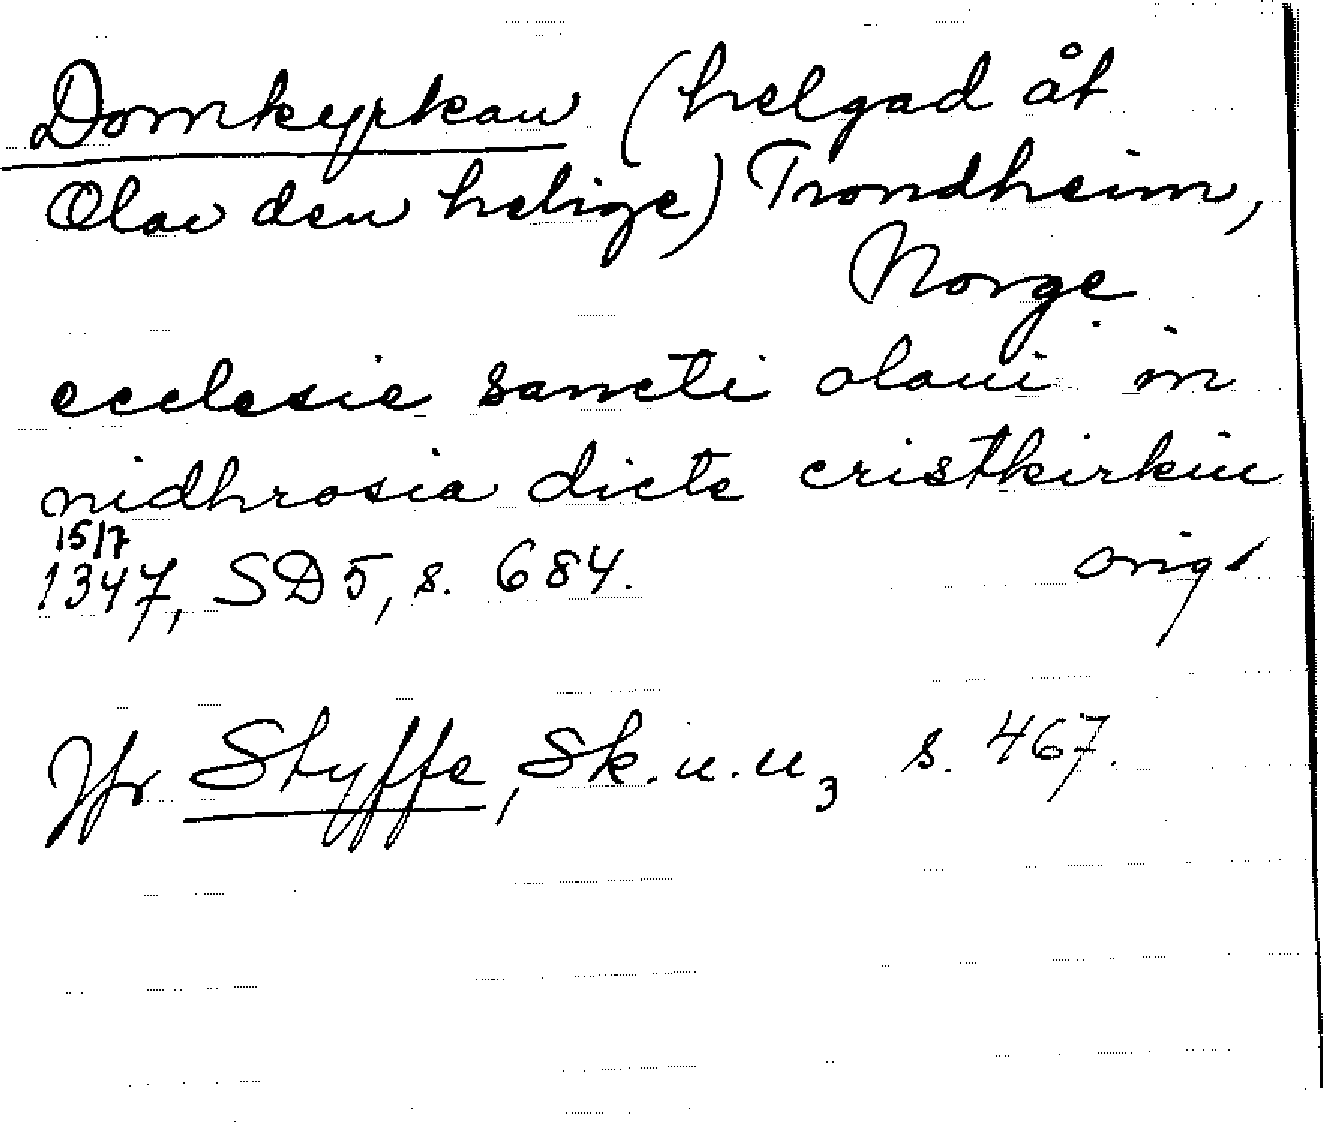 Domkyrkan (helgad åt
Olav den helige) Trondheim,
Norge
ecclesie sancti olaui in
nidhrosia dicte cristkirkiu
15/7
1347, SD 5, s. 684. orig.
Jfr Styffe, Sk.u.u, 3 s. 467.